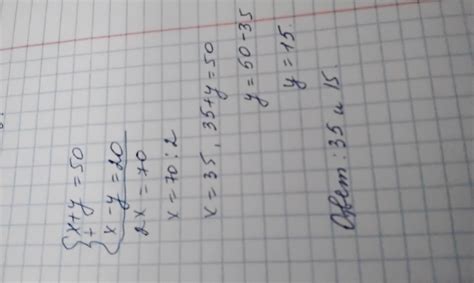 {x+y=50
+
x-y=20
2x=70
x=70:2
x=35, 35+y=50
y=50-35
y=15.
Ответ: 35 и 15.